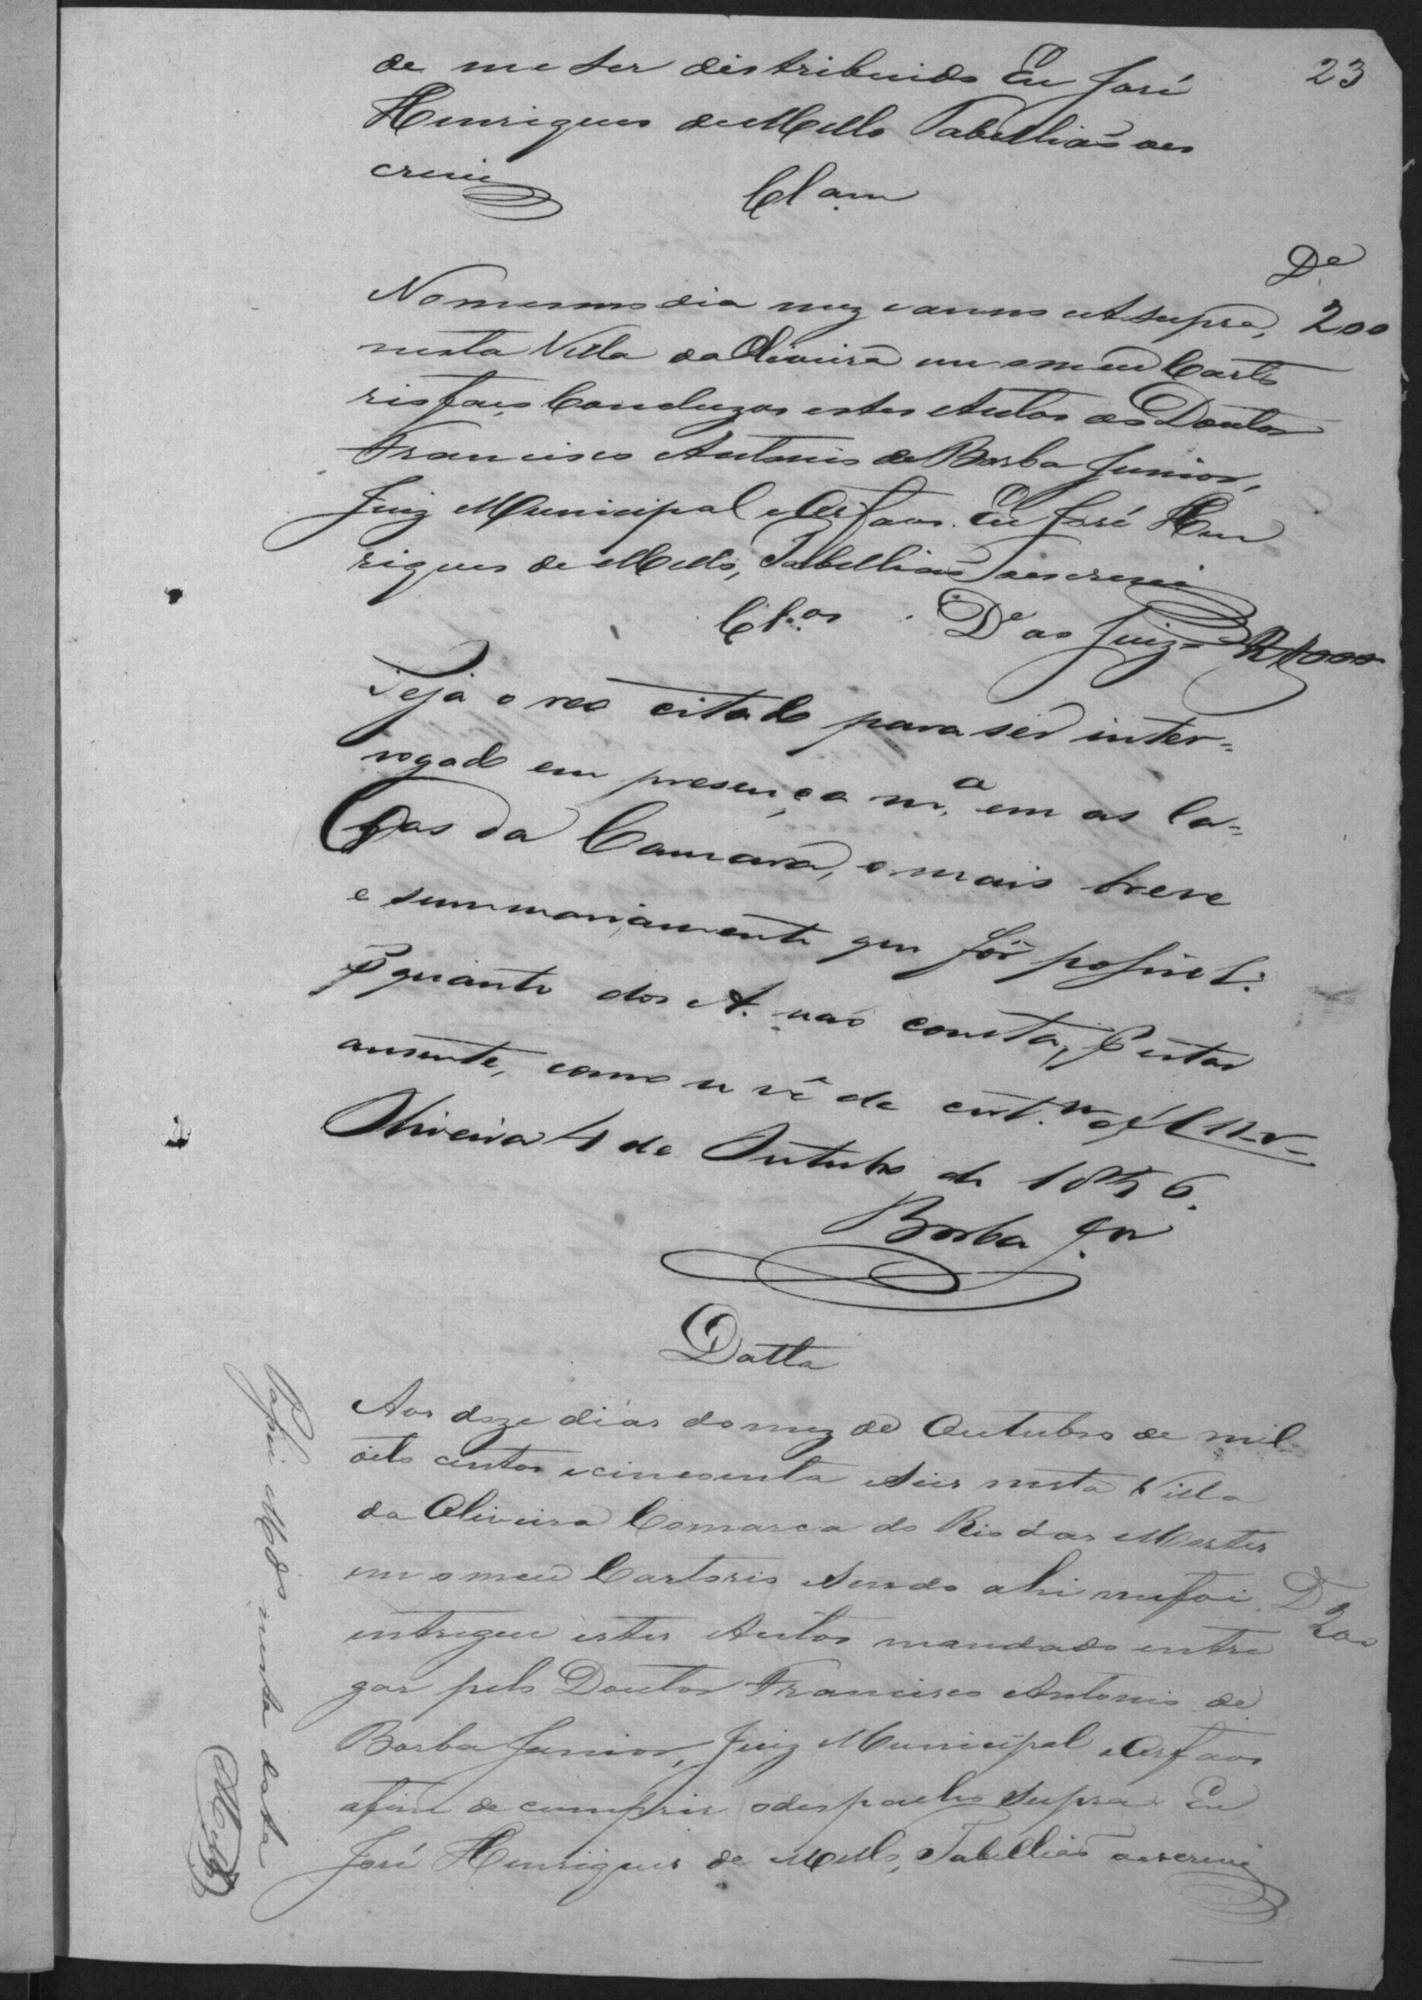 23
de me ser distribuido Eu José
Henriques de Mello Tabellião oes
crevi
Clam
De
No mesmo dia mez e anno ut supra, 200
nesta Villa da Oliveira em o meu Carto
rio faço Concluzos estes Autos ao Doutor
Francisco Antonio de Borba Junior,
Juiz Municipal e Orfaos. Eu José Hen
riques de Mello, Tabellião o escrevi
Cl.os De ao Juiz
Seja o reo citado para ser inter=
rogado em presença m.a em as Ca=
sas da Camara, o mais breve
e summariamente que fôr possivel:
quanto dos A. não consta, estar
ausente, como se vê da
Oliveira 4 de Outubro de 1856.
Borba Jor
Datta
Aos doze dias do mez de Outubro de mil
oito centos e cincoenta e Seis nesta Villa
da Oliveira Comarca do Rio das Mortes
em o meu Cartorio sendo ahi me foi D
entregue estes Autos mandado entre 200
gar pelo Doutor Francisco Antonio de
Borba Junior, Juiz Municipal e Orfaos
afim de cumprir o despacho supra Eu
José Henriques de Mello, Tabellião o escrevi
Passei Mdo nesta data
Mello